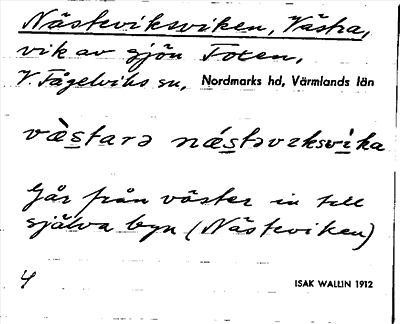 Nästeviksviken, Västra,
vik av sjön Foxen,
V. Fågelviks sn, Nordmarks hd, Värmlands län
vàs̲tarə nǽs̲təvɪksvi̲ka
Går från väster in till
själva byn (Nästeviken)
4 ISAK WALLIN 1912